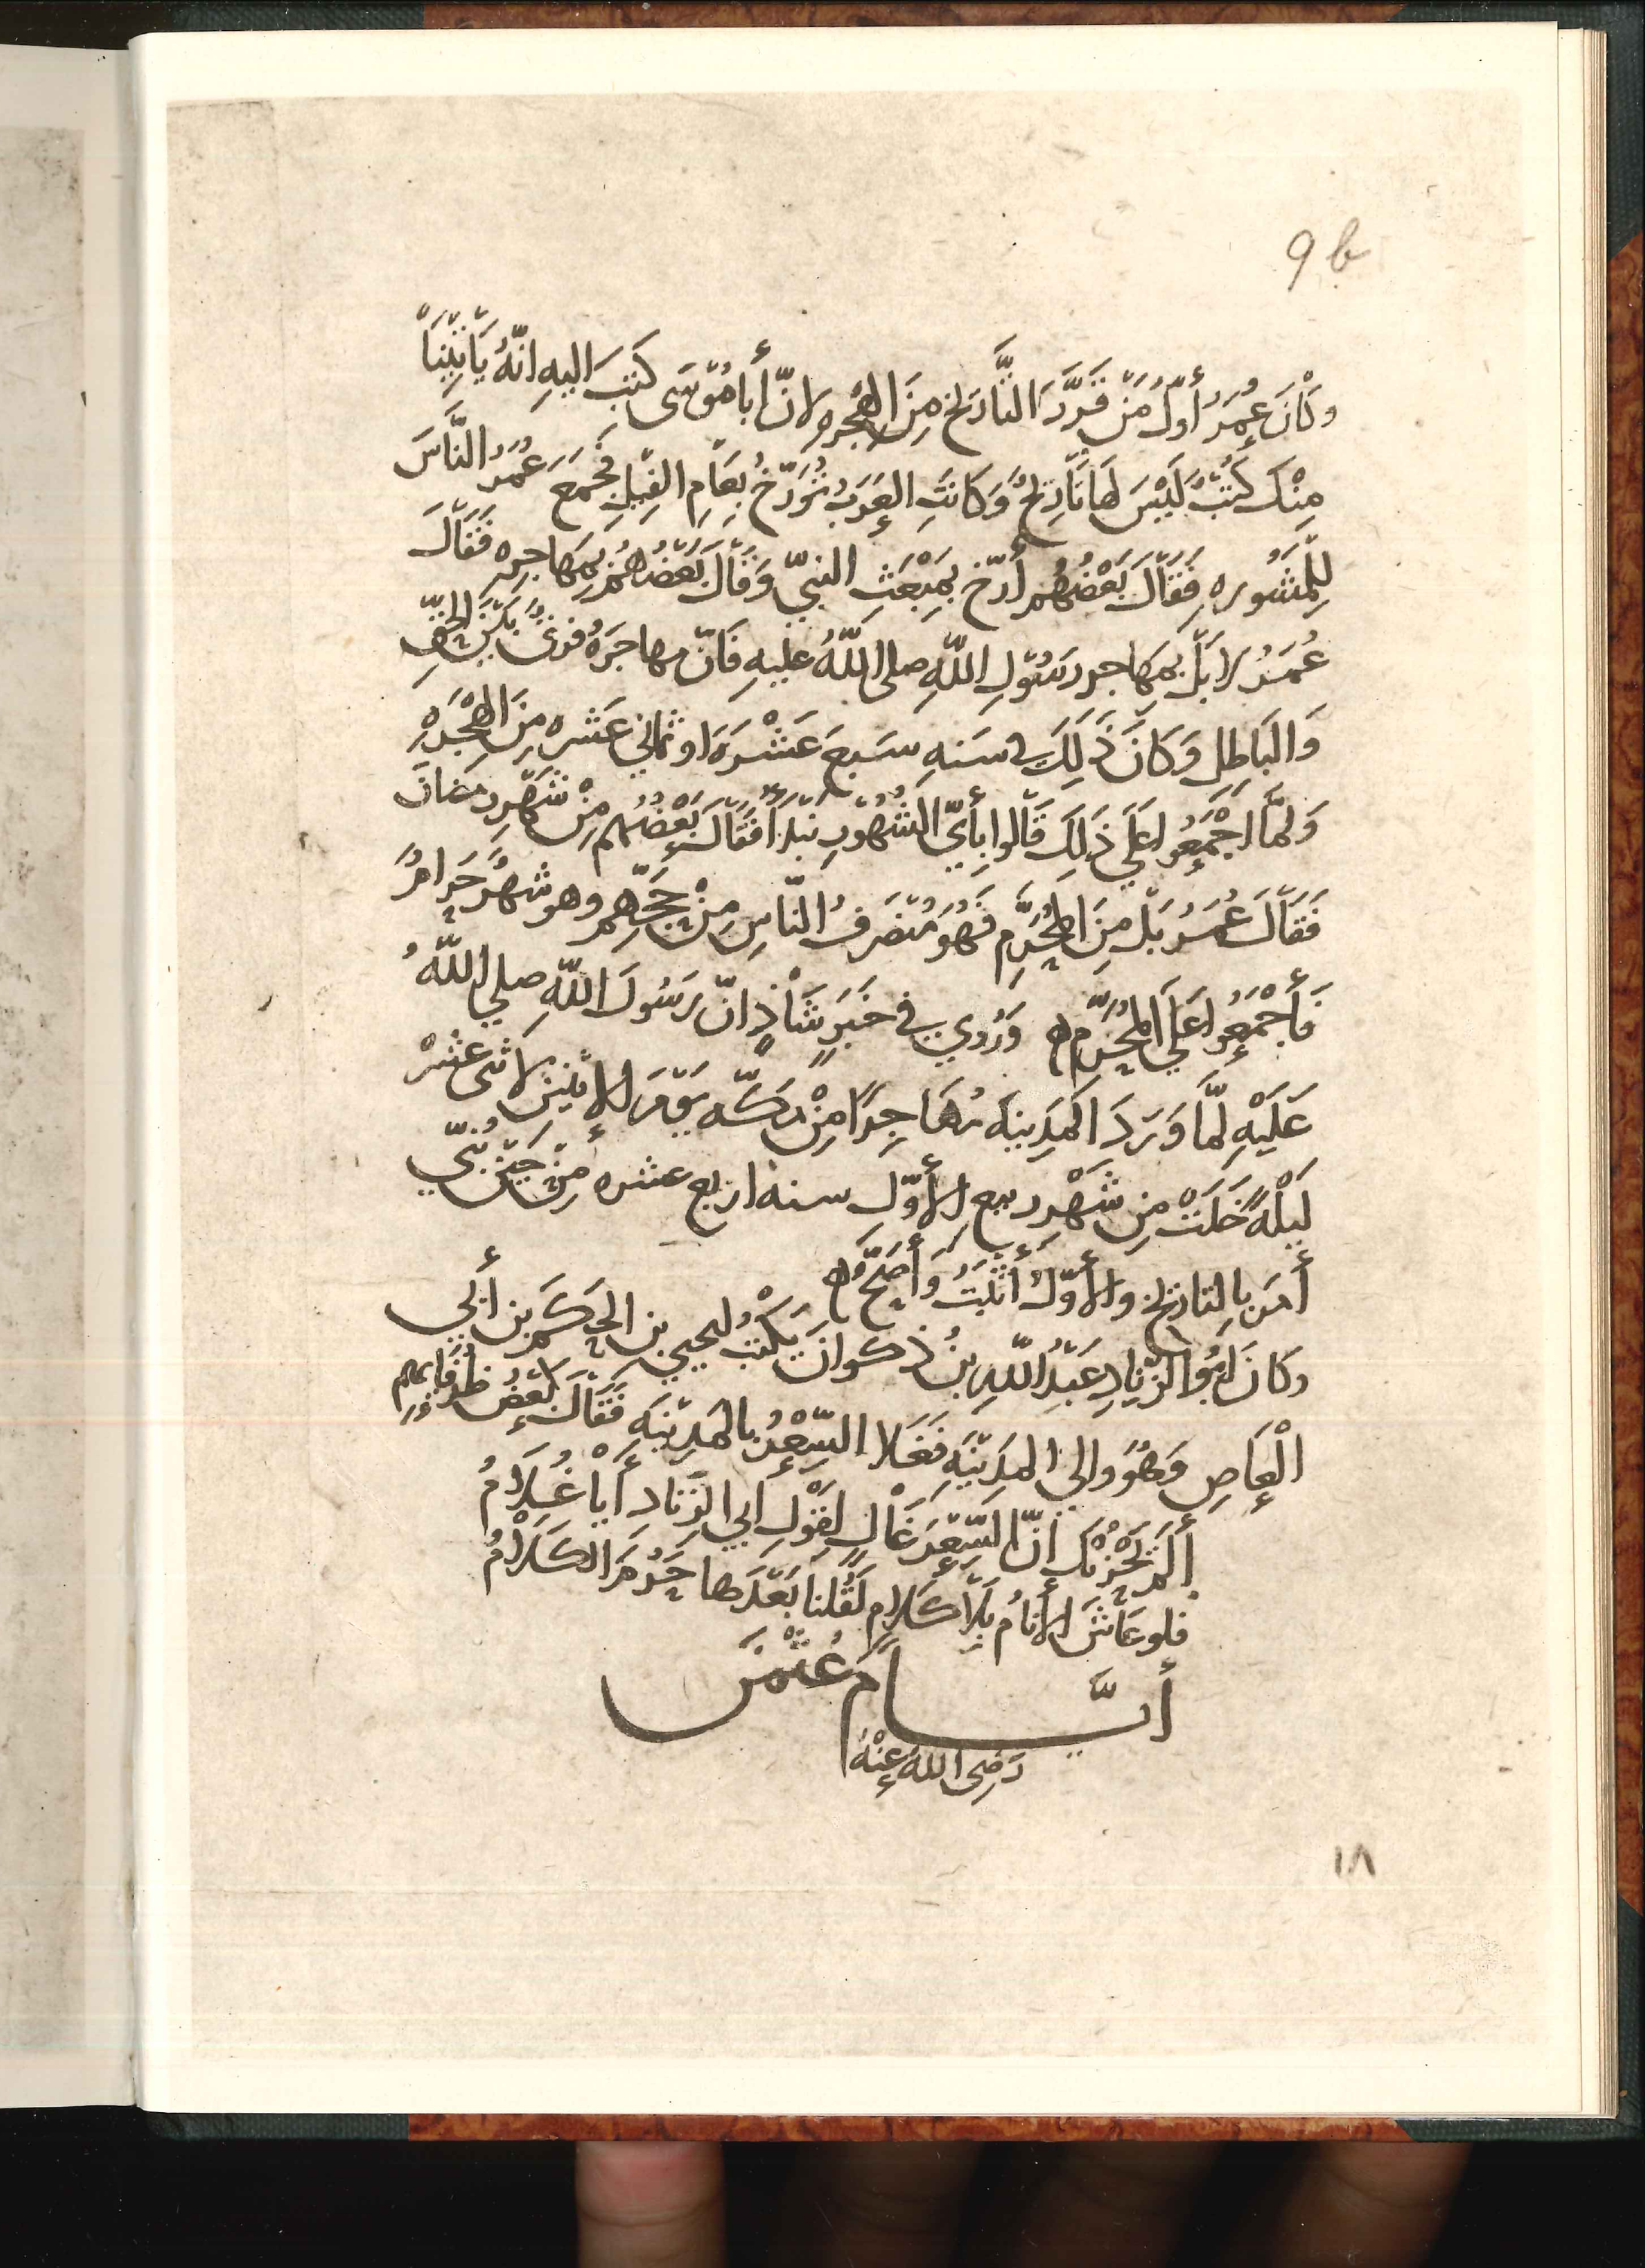 9b
وَكَانَ عُمَرُ أَوَّلَ مَنْ قَرَّرَ التَّارِيخَ مِنَ الهِجْرِهِ لانّ أَبا مُوْسَى كَتَبَ اليهِ انّهُ يَأْتِيْنَا
مِنْكَ كُتُبٌ لَيْسَ لَهَا تَارِيْخٌ وَكَانَتِ العَرَبُ تُوَرِّخُ بِعَامِ الفِيْلِ فَجَمَعَ عُمَرُ النَّاسَ
لِلْمَشُوره فَقَالَ بَعْضُهُم أَرِّخ بِمَبْعَثِ النبيّ وَقَالَ بَعْضُهُمْ بِمُهَاجرِهِ فَقَالَ
عُمَرُ لا بَلْ بِمُهَاجرِ رَسُوْلِ اللّهِ صلى اللّهُ عليهِ فَانّ مهاجَرَهُ فرقٌ بَيْنَ الحَقِّ
وَالبَاطِلِ وَكَانَ ذَلِكَ في سَنهِ سَبعَ عَشْرَهَ او ثماني عَشره مِنَ الهِجْرَهِ
وَلمَّا اجْمَعُوا عَلَي ذَلِكَ قَالُوا بِأَيِّ الشُهُوْرِ نبْدَأُ فَقَالَ بَعْضُهُم مِنْ شَهْرِ رمضانَ
فَقَالَ عُمَرُ بَلْ مِنَ المُحَرَّمِ فَهُوَ مُنصَرَفُ النّاسِ مِنْ حَجِّهِم وهو شهْرٌ حَرامٌ
فأَجْمَعُوا عَلَي المُحَرَّمِ ه وَرُوِي في خَبَرٍ شَاذٍّ انّ رَسُولَ اللّهِ صلي اللّهُ
عَلَيْهِ لمّا وَرَدَ المَدِينهَ مُهَاجِرًا مِنْ مَكّه يَوْمَ الاِثنينِ لاثنَى عَشْرَ
لَيْلَهً خَلَتْ مِن شَهْرِ ربيع الأَوّل سنه اربع عشره مِنْ حِيْنِ نُبِّي
أَمَرَ بالتاريخ والأَوّلُ أَثْبَتُ وَأَصَحُّ ه
وَكَانَ أَبُوا الزِّنَادِ عَبْدُ اللّهِ بنُ ذكوانَ يَكْتُبُ ليحيي بن الحَكَمِ بن أَبي
الْعَاصِ وَهُوَ والي المَدِيْنَهِ فَغَلا السِّعْرُ بالمَدِيْنَهِ فَقَالَ بَعْضُ ظُرَفَائِهِم
أَلَمْ يَحْزُنْكَ انّ السِّعْرَ غَالٍ لِقَوْلِ أَبي الزِّنَادِ أَيَا غُلاَمُ
فلو عَاشَ الأنامُ بِلاَ كَلامٍ لَقُلنَا بَعْدَها حَرُمَ الكَلاَمُ
أيَّام عُثْمٰنَ
رَضِى اللّهُ عنْهُ
١٨